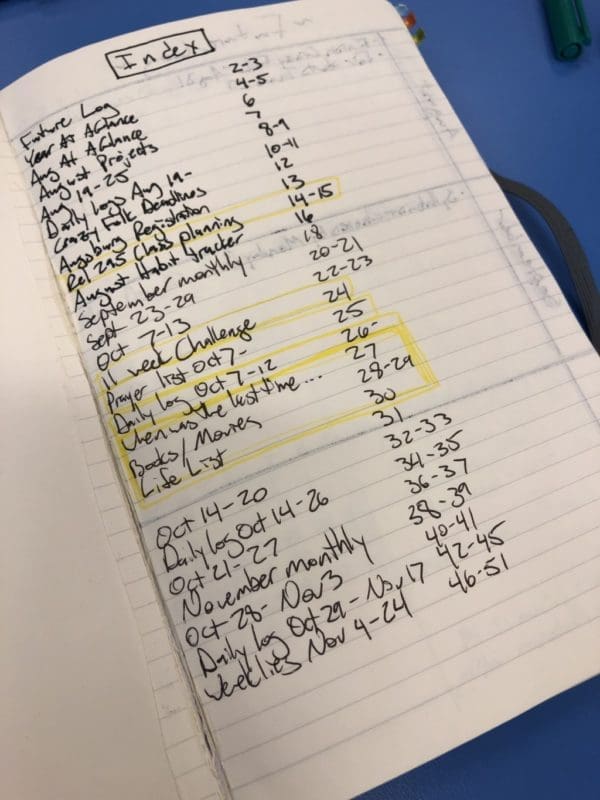 Index
Future Log
Year At A Glance
Aug At A Glance
August Projects
Aug 19-25
Daily Logs Aug 19-
Crazy Folk Deadlines
Augsburg Registration
Rel 295 Class planning
August Habit Tracker
September monthly
Sept 23-29
Oct 7-13
11 week Challenge
Prayer list Oct 7-
Daily log Oct 7-12
When was the last time...
Books/Movies
Life List
Oct 14-20
Daily log Oct 14-26
Oct 21-27
November monthly
Oct 28- Nov 3
Daily log Oct 29- Nov 17
Weeklies Nov 4-24
2-3
4-5
6
7
8-9
10-11
12
13
14-15
16
18
20-21
22-23
24
25
26-
27
28-29
30
31
32-33
34-35
36-37
38-39
40-41
42-45
46-51